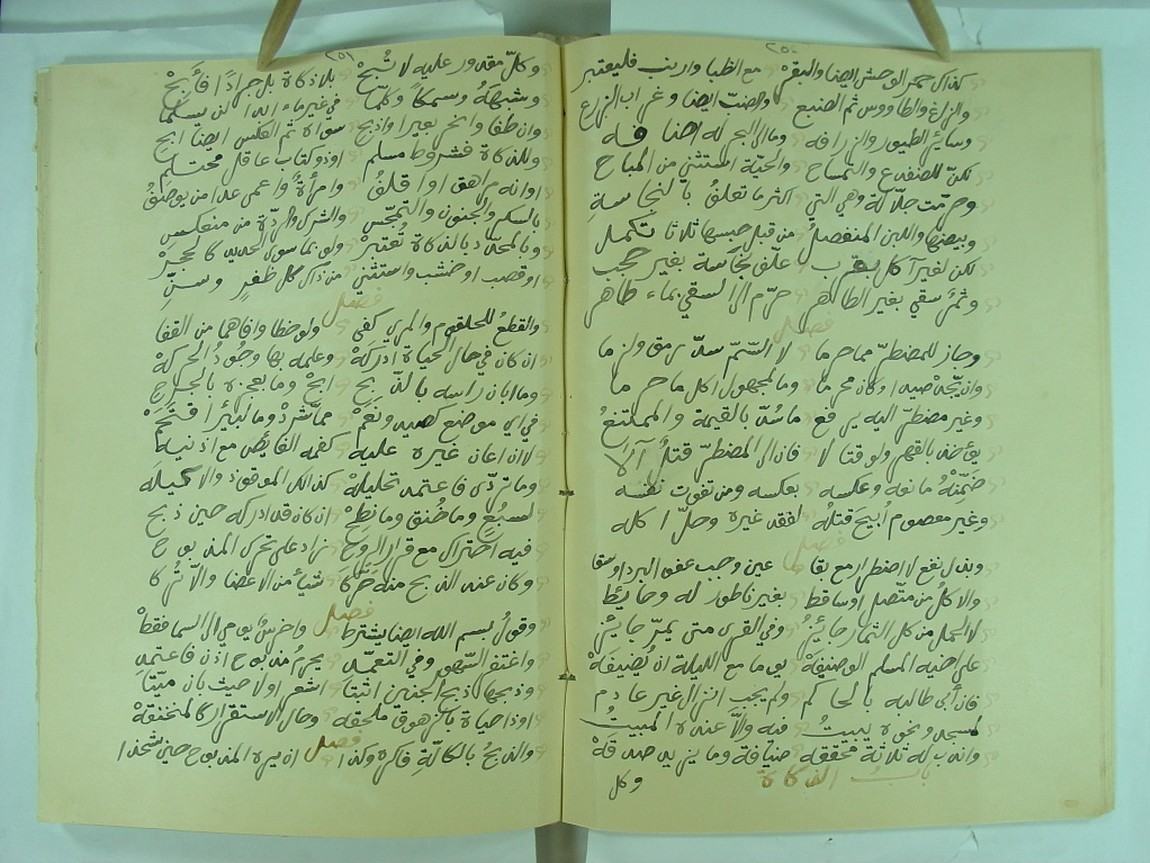 ٢٥٠
كذاك حمر الوحش ايضا والبقر مع الظبا وارنب فليعتبر
والزاغ والطاووس ثم الضبع والضب ايضا وغراب الزرع
وسائر الطيور والزرافه وما الى البحر له اضافه
لكن للضفدع والتمساح والحية استثني من المباح
وحرمت جلالة وهي التي اكثر ما تعلف بالنجاسة
وبيضها واللبن المنفصل من قبل حبسها ثلاثا تكمل
لكن لغير آكل علف نجاسة بغير حجب
وثمر سقي بغير الطاهر حرم الى السقي بماء طاهر
فصل
وجاز للمضطر مما حرما لا السم سد رمق ولزما
وان يجد صيدا وكان محرما وما لمجهول اكل ما حرما
وغير مضطر اليه يرفع ما سد بالقيمة والممتنع
يؤخذ بالقهر ولو قتا لا فان الى المضطر قتل آلا
ضمنه مانعه وعكسه بعكسه ومن تفوت نفسه
وغير معصوم أبيح قتله لفقد غيره وحل اكله
فصل
وبذل نفع لاضطرار مع بقا عين وجب عفو البرد او سقا
والاكل من متصل او ساقط بغير ناطور له وحائط
لا الحمل من كل الثمار جائز وفي القرى متى يمر جايز
على اخيه المسلم الوضيفة يوما مع الليلة ان يضيفه
فان أبى طالبه بالحاكم ولم يجب انزال غير عادم
لمسجد ونحوه يبيت فيه والا عنده المبيت
واندب له ثلاثة محققه ضيافة وما يزيد صدقه
باب الذكاة
وكل
٢٥١
وكل مقدور عليه لا تبح بلا ذكاة بل جرادا فأبح
وشبهه وسمكا وكلما في غير ماء ابدا لن يسلما
وان طفا وانحر بعيرا واذبح سواه ثم العكس ايضا ابح
وللذكاة فشروط مسلم او ذو كتاب عاقل محتلم
او انه مراهق او اقلف وامرأة واعمى عدا من يوصف
بالسكر والجنون والتمجس والشرك والردة من منعكس
وبالمحدد بالذكاة تعتبر ولو بما سوى الحديد كالحجر
او قصب او خشب واستثني من ذاك كل ظفر وسن
فصل
والقطع للحلقوم والمري كفى ولو خطا وافاهما من القفا
ان كان في حال الحياة ادركه وعلمه بها وجود الحركه
وما ابان راسه بالذبح ابح وما يعجزه بالجرح
في اي موضع كصيد ونعم مما شرد وما لبئر اقتحم
لا ان اعان غيره عليه كفمه الغايص مع اذنيه
وما تردى فاعتمد تحليله كذلك الموقوذ والاكيله
لسبع وما خنق وما نطح ان كان قد ادركه حين ذبح
فيه احتراك مع قرار الروح زاد على تحرك المذبوح
وكان عند الذبح منه حركا شيأ من الاعضا والا تركا
فصل
وقول بسم الله ايضا يشترط واخرس يومي الى السما فقط
واغتفر السهو وفي التعمد يحرم مذبوح اذن فاعتمد
وذبحها ذبح الجنين اثبتا اشعر او لا حيث بان ميتا
او ذا حياة بالزهوق ملحقه وحال الاستقرار كالمنخنقه
فصل
والذبح بالكالة فاكره وكذا ان يره المذبوح حين شحذا